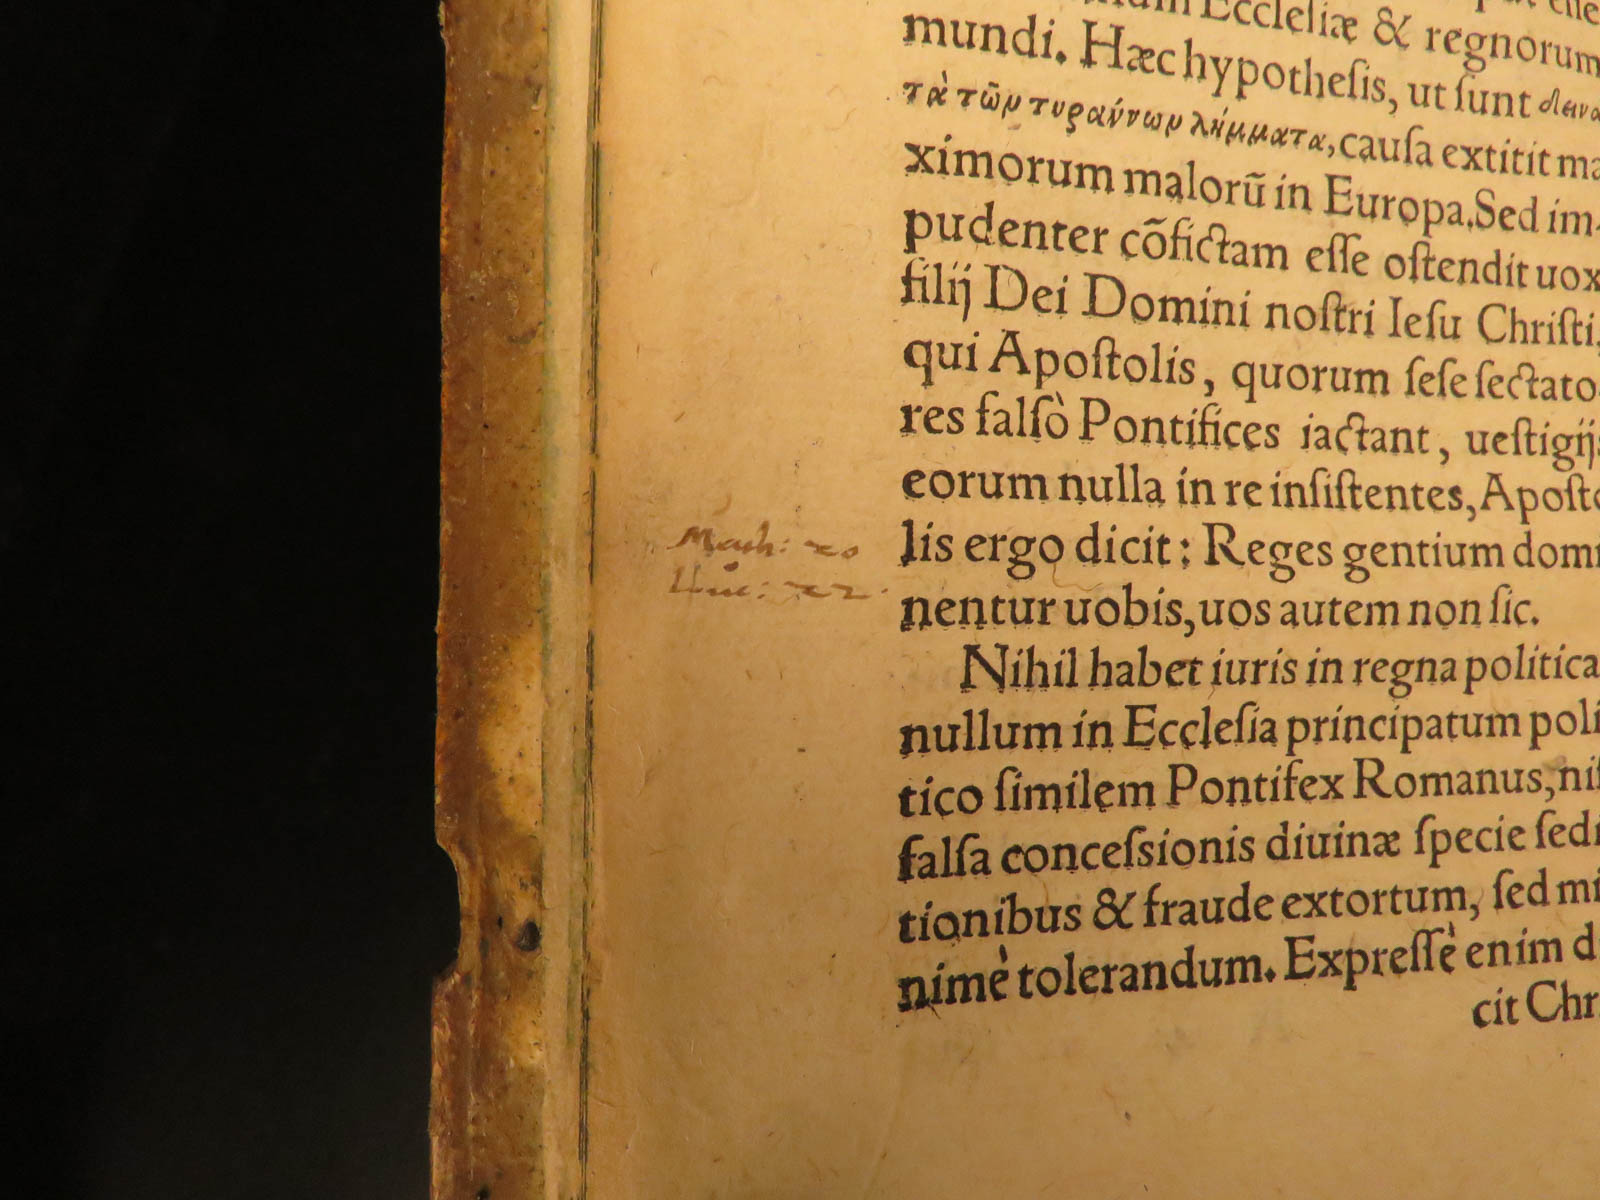 Eccleſiæ & regnorum
mundi. Hæc hypotheſis, ut ſunt
τὰ τῶν τυράννων λήμματα, cauſa extitit ma
ximorum malorũ in Europa. Sed im-
pudenter cõfictam eſſe oſtendit uox
filij Dei Domini noſtri Ieſu Chriſti,
qui Apoſtolis, quorum ſeſe ſectato
res falſò Pontifices iactant, ueſtigijs
eorum nulla in re inſiſtentes, Apoſto
lis ergo dicit: Reges gentium domi
nentur uobis, uos autem non ſic.
Nihil habet iuris in regna politica
nullum in Eccleſia principatum poli
tico ſimilem Pontifex Romanus, niſ
falſa conceſsionis diuinæ ſpecie ſedi
tionibus & fraude extortum, ſed mi
nimè tolerandum. Expreſſè enim di
cit Chr
Math: 20
Luc: 22.